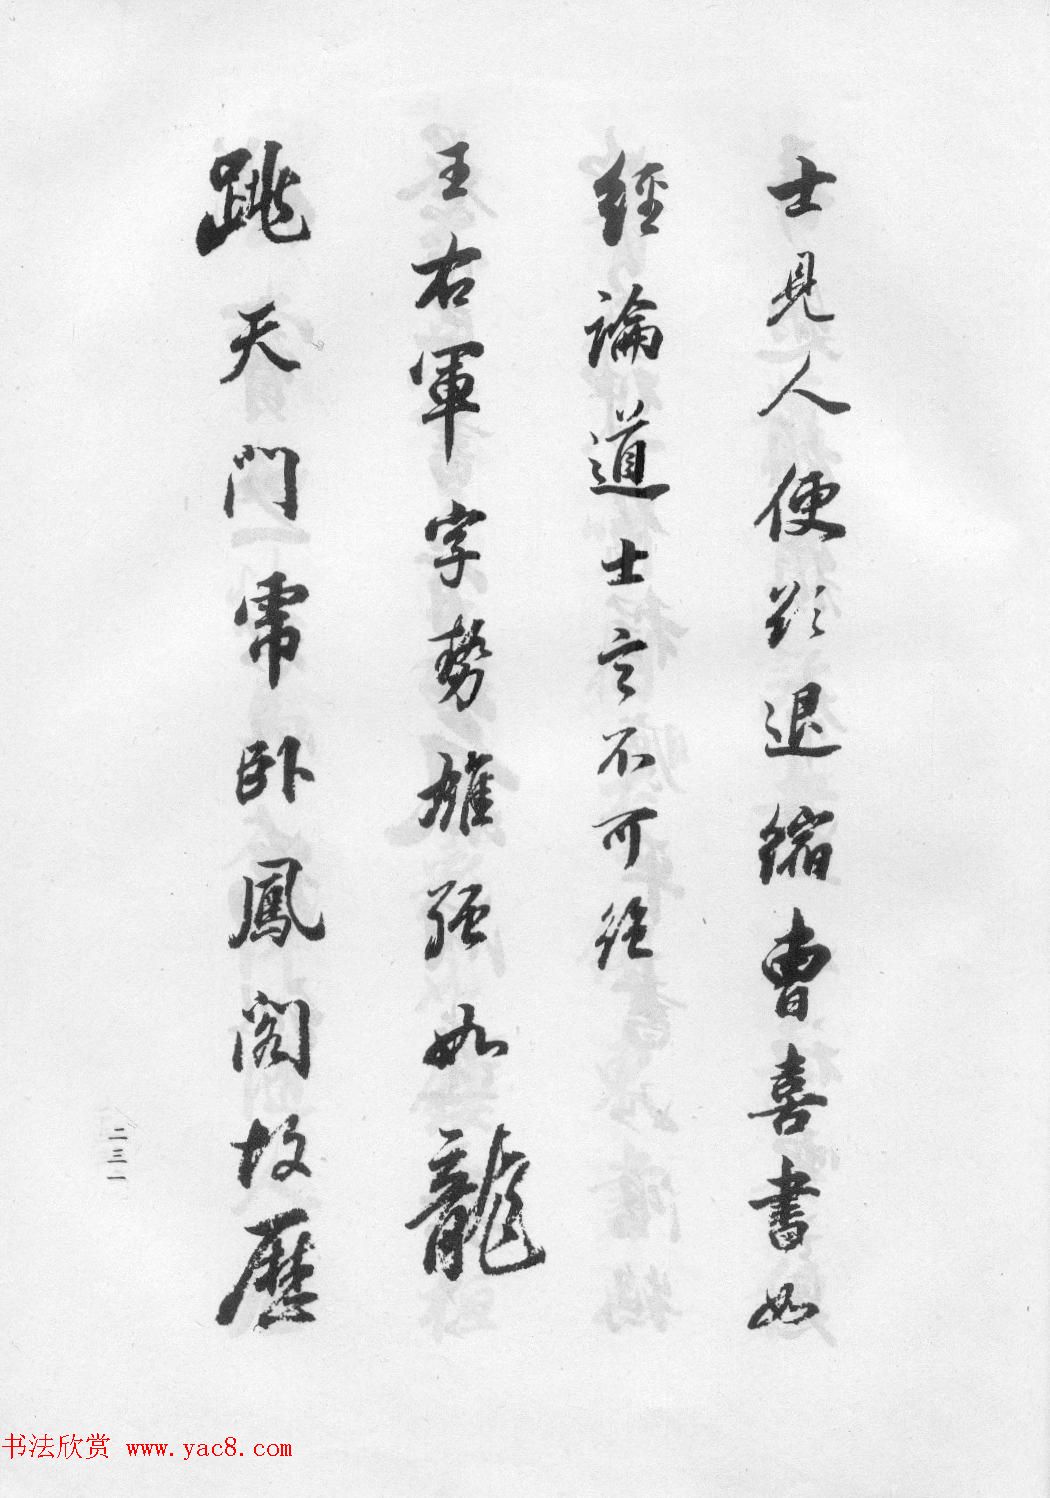 士見人便欲退縮曹喜書如
經論道士言不可絕
王右軍字勢雄強如龍
跳天門常臥鳳閣故歷
二三一
书法欣赏 www.yac8.com